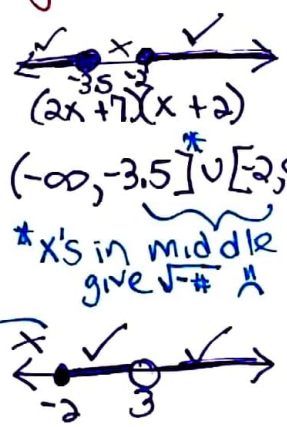 ✓ x ✓
-3.5 -2
(2x+7)(x+2)
(-∞,-3.5]*∪[-2,
*x's in middle
give √-#
x ✓ ✓
-2 3